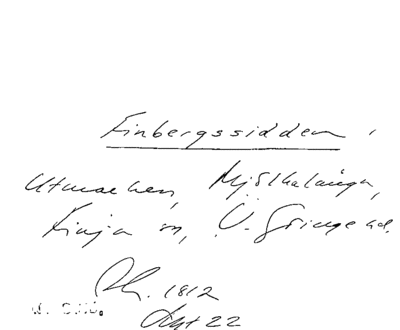 Finbergssidden,
Utmarken, Mjölkalånga,
Finja sn, V. Göinge hd.
Rk. 1812
Akt 22